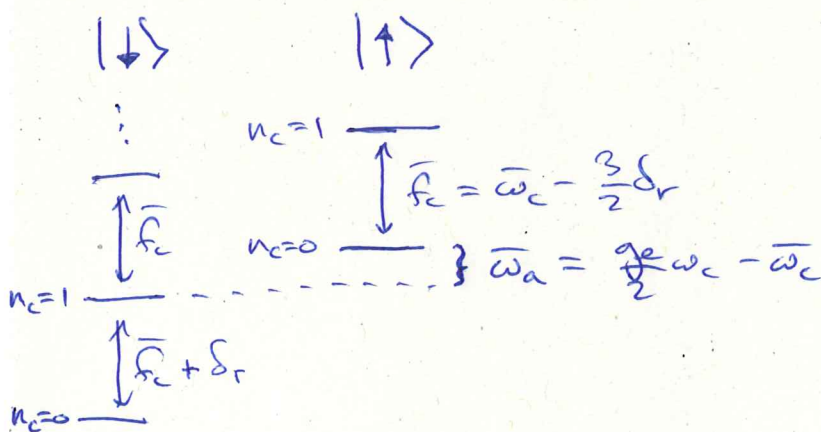 |↓⟩ |↑⟩
⋮
n_c=1
f̄_c f̄_c = ω̄_c - 3/2 δ_r
n_c=0
} ω̄_a = g_e/2 ω_c - ω̄_c
n_c=1
f̄_c + δ_r
n_c=0